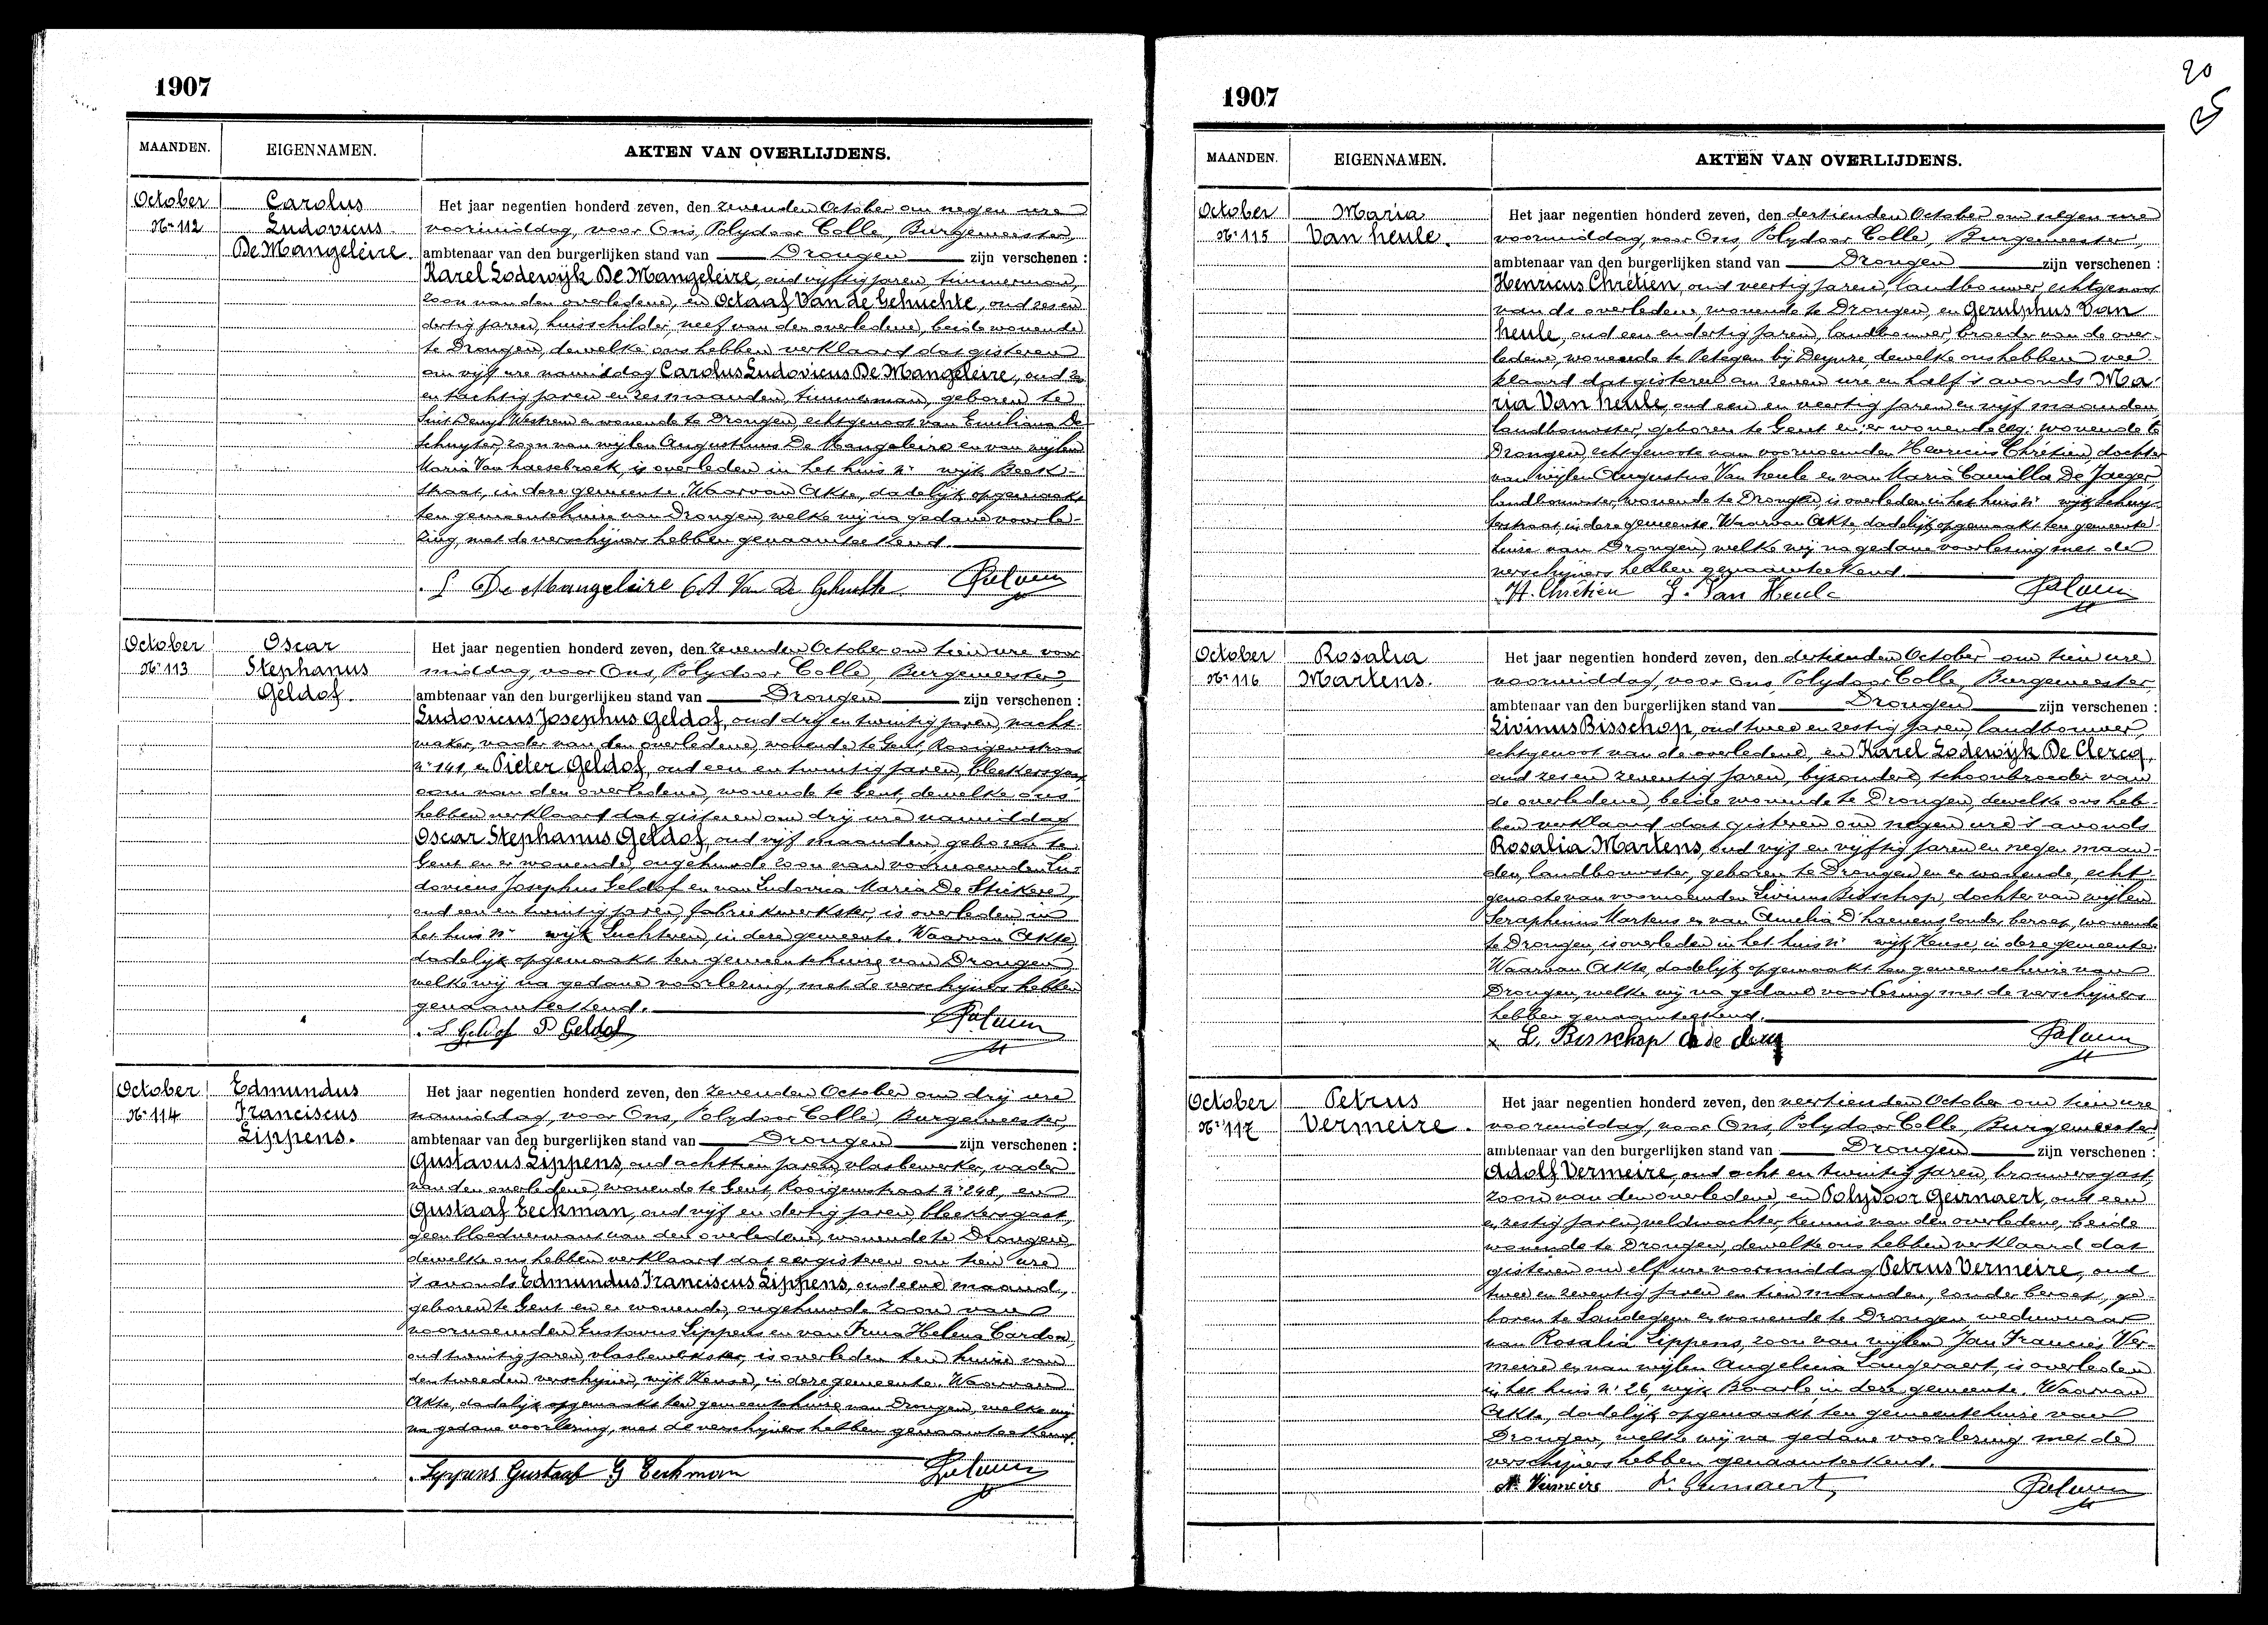 1907
MAANDEN.
EIGENNAMEN.
AKTEN VAN OVERLIJDENS.
October
Nr 112
Carolus
Ludovicus
De Mangeleire.
Het jaar negentien honderd zeven, den zevenden October om negen ure
voormiddag, voor Ons, Polydoor Colle, Burgemeester,
ambtenaar van den burgerlijken stand van Drongen zijn verschenen :
Karel Lodewijk De Mangeleire, oud vijftig jaren, timmerman,
zoon van den overledene, en Octaaf Van de Gehuchte, oud zes en
dertig jaren, huisschilder, neef van den overledene, beide wonende
te Drongen, dewelke ons hebben verklaard dat gisteren
om vijf ure namiddag Carolus Ludovicus De Mangeleire, oud zes
en tachtig jaren en zes maanden, timmerman, geboren te
Sint Denys Westrem en wonende te Drongen, echtgenoot van Emiliana De
Schuyter, zoon van wijlen Augustinus De Mangeleire en van wijlen
Maria Van haesebroek, is overleden in het huis nr wijk Beek-
straat, in deze gemeente. Waarvan Akte, dadelijk opgemaakt
ten gemeentehuize van Drongen, welke wij na gedane voorle-
zing, met de verschijners hebben genaamteekend.
De Mangeleire Van De Gehuchte
October
Nr 113
Oscar
Stephanus
Geldof.
Het jaar negentien honderd zeven, den zevenden October om tien ure voor
middag, voor Ons, Polydoor Colle, Burgemeester,
ambtenaar van den burgerlijken stand van Drongen zijn verschenen :
Ludovicus Josephus Geldof, oud drij en twintig jaren,
maker, vader van den overledene, wonende te Gent, Rooigemstraat
nr 141, en Pieter Geldof, oud een en twintig jaren, bleekersgast,
oom van den overledene, wonende te Gent, dewelke ons
hebben verklaard dat gisteren om drij ure namiddag
Oscar Stephanus Geldof, oud vijf maanden, geboren te
Gent en er wonende, ongehuwde zoon van voornoemden Lu-
dovicus Josephus Geldof en van Ludovica Maria De Stickere,
oud een en twintig jaren, fabriekwerkster, is overleden in
het huis nr wijk Luchteren, in deze gemeente. Waarvan Akte,
dadelijk opgemaakt ten gemeentehuize van Drongen,
welke wij na gedane voorlezing, met de verschijners hebben
genaamteekend.
L Geldof P Geldof
October
Nr 114
Edmundus
Franciscus
Lippens.
Het jaar negentien honderd zeven, den zevenden October om drij ure
namiddag, voor Ons, Polydoor Colle, Burgemeester,
ambtenaar van den burgerlijken stand van Drongen zijn verschenen :
Gustavus Lippens, oud achttien jaren, vlasbewerker, vader
van den overledene, wonende te Gent, Rooigemstraat nr 248, en
Gustaaf Eeckman, oud vijf en dertig jaren, bleekersgast,
geen bloedverwant van den overledene, wonende te Drongen,
dewelke ons hebben verklaard dat eergisteren om tien ure
's avonds Edmundus Franciscus Lippens, oud eene maand,
geboren te Gent en er wonende, ongehuwde zoon van
voornoemden Gustavus Lippens en van Irma Helena Cardon,
oud twintig jaren, vlasbewerkster, is overleden ten huize van
den tweeden verschijner, wijk Keuze, in deze gemeente. Waarvan
Akte, dadelijk opgemaakt ten gemeentehuize van Drongen, welke wij
na gedane voorlezing, met de verschijners hebben genaamteekend.
Lyppens Gustaaf G Eeckman
20
1907
MAANDEN.
EIGENNAMEN.
AKTEN VAN OVERLIJDENS.
October
Nr 115
Maria
Van heule.
Het jaar negentien honderd zeven, den dertienden October om negen ure
voormiddag, voor Ons, Polydoor Colle, Burgemeester,
ambtenaar van den burgerlijken stand van Drongen zijn verschenen :
Henricus Chrétien, oud veertig jaren, landbouwer, echtgenoot
van de overledene, wonende te Drongen, en Gerulphus Van
heule, oud een en dertig jaren, landbouwer, broeder van de over-
ledene, wonende te Petegem bij Deynze, dewelke ons hebben ver
klaard dat gisteren om zeven ure en half 's avonds Ma-
ria Van heule, oud een en veertig jaren en vijf maanden,
landbouwster, geboren te Gent en wonende te
Drongen, echtgenoote van voornoemden Henricus Chrétien, dochter
van wijlen Augustus Van heule en van Maria Camilla De Jaeger,
landbouwster, wonende te Drongen, is overleden in het huis nr wijk
straat, in deze gemeente. Waarvan Akte, dadelijk opgemaakt ten gemeente-
huize van Drongen, welke wij na gedane voorlezing met de
verschijners hebben genaamteekend.
H. Chrétien G. Van Heule
October
Nr 116
Rosalia
Martens.
Het jaar negentien honderd zeven, den dertienden October om tien ure
voormiddag, voor ons, Polydoor Colle, Burgemeester,
ambtenaar van den burgerlijken stand van Drongen zijn verschenen :
Livinus Bisschop, oud twee en zestig jaren, landbouwer,
echtgenoot van de overledene, en Karel Lodewijk De Clercq,
oud zes en zeventig jaren, bijzondere, schoonbroeder van
de overledene, beide wonende te Drongen, dewelke ons heb-
ben verklaard dat gisteren om negen ure 's avonds
Rosalia Martens, oud vijf en vijftig jaren en negen maan-
den, landbouwster, geboren te Drongen en er wonende, echt-
genoote van voornoemden Livinus Bisschop, dochter van wijlen
Seraphinus Martens en van Amelia D'haenens, zonder beroep, wonende
te Drongen, is overleden in het huis nr wijk Keuze, in deze gemeente.
Waarvan Akte, dadelijk opgemaakt ten gemeentehuize van
Drongen, welke wij na gedane voorlezing met de verschijners
hebben genaamteekend.
L. Bisschop
October
Nr 117
Petrus
Vermeire.
Het jaar negentien honderd zeven, den veertienden October om tien ure
voormiddag, voor Ons, Polydoor Colle, Burgemeester,
ambtenaar van den burgerlijken stand van Drongen zijn verschenen :
Adolf Vermeire, oud acht en twintig jaren, brouwersgast,
zoon van den overledene, en Polydoor Geirnaert, oud een
en zestig jaren, veldwachter, kennis van den overledene, beide
wonende te Drongen, dewelke ons hebben verklaard dat
gisteren om elf ure voormiddag Petrus Vermeire, oud
twee en zeventig jaren en tien maanden, zonder beroep, ge-
boren te Landegem en wonende te Drongen, weduwnaar
van Rosalia Lippens, zoon van wijlen Jan Francies Ver-
meire en van wijlen Angelina Langeraert, is overleden
in het huis nr 26, wijk Baarle, in deze gemeente. Waarvan
Akte, dadelijk opgemaakt ten gemeentehuize van
Drongen, welke wij na gedane voorlezing met de
verschijners hebben genaamteekend.
A. Vermeire P. Geirnaert